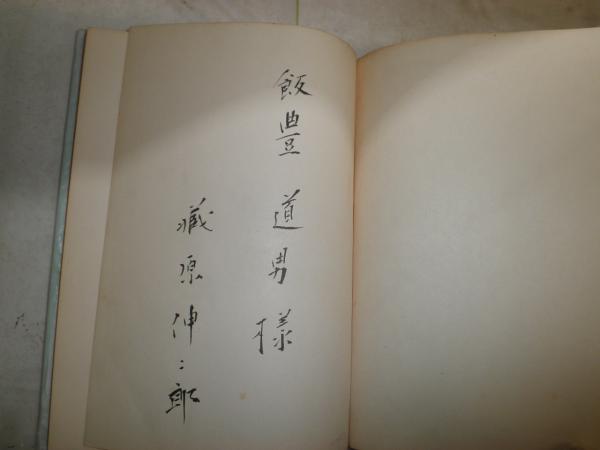 飯豊道男様
蔵原伸二郎